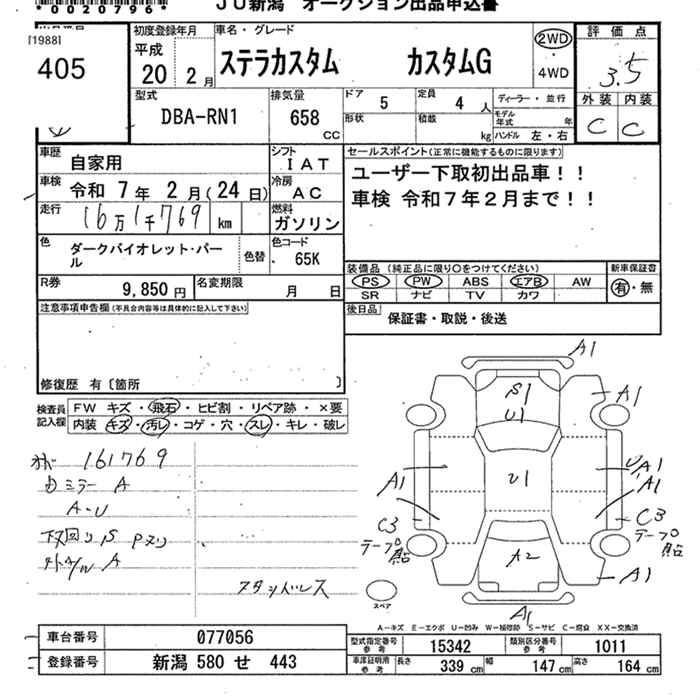 0020796
JU新潟 オークション出品申込書
[1988]
405
初度登録年月
平成
20 2月
車名・グレード
ステラカスタム カスタムG
2WD
4WD
評価点
3.5
外装 内装
C C
型式
DBA-RN1
排気量
658
CC
ドア 5
形状
定員 4 人
積載 kg
ディーラー・並行
モデル年式 年
ハンドル 左・右
車歴
自家用
シフト
IAT
車検
令和 7年 2月(24日)
冷房
AC
走行
16万1千769 km
燃料
ガソリン
色
ダークバイオレット・パール
色替
色コード
65K
R券
9,850円
名変期限
月 日
セールスポイント(正常に機能するものに限ります)
ユーザー下取初出品車！！
車検 令和7年2月まで！！
装備品(純正品に限り○をつけてください)
PS PW ABS エアB AW
SR ナビ TV カワ
新車保証書
有・無
後日品
保証書・取説・後送
注意事項申告欄(不具合内容等は具体的に記入して下さい)
修復歴 有〔箇所 〕
検査員記入欄
FW キズ・飛石・ヒビ割・リペア跡・×要
内装 キズ・汚レ・コゲ・穴・スレ・キレ・破レ
161769
ミラー A
A-U
下回り S Pヌリ
A
スタッドレス
A1
S1
U1
A1
A1
U1
UA1
A1
C3
テープ貼
C3
テープ貼
A2
A1
A1
スペア
A-キズ E-エクボ U-凹み W-補修跡 S-サビ C-腐食 XX-交換済
車台番号
077056
登録番号
新潟 580 せ 443
型式指定番号 参考
15342
類別区分番号 参考
1011
車庫証明用 参考
長さ 339 cm
幅 147 cm
高さ 164 cm